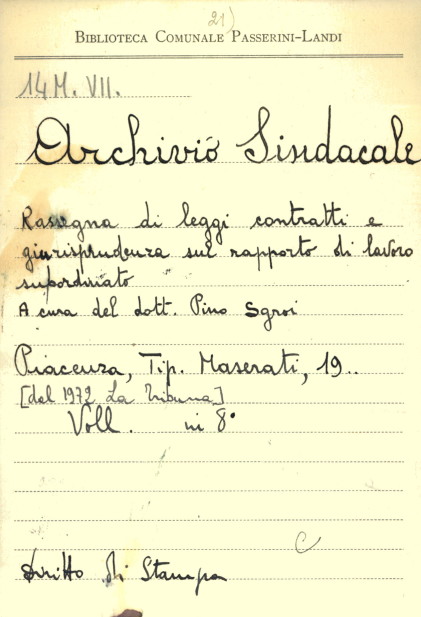 21)
BIBLIOTECA COMUNALE PASSERINI-LANDI
14M. VII.
Archivio Sindacale
Rassegna di leggi contratti e
giurisprudenza sul rapporto di lavoro
subordinato
A cura del dott. Pino Sgroi
Piacenza, Tip. Maserati, 19..
[dal 1972 La Tribuna]
Voll. in 8°
C
Diritto di Stampa